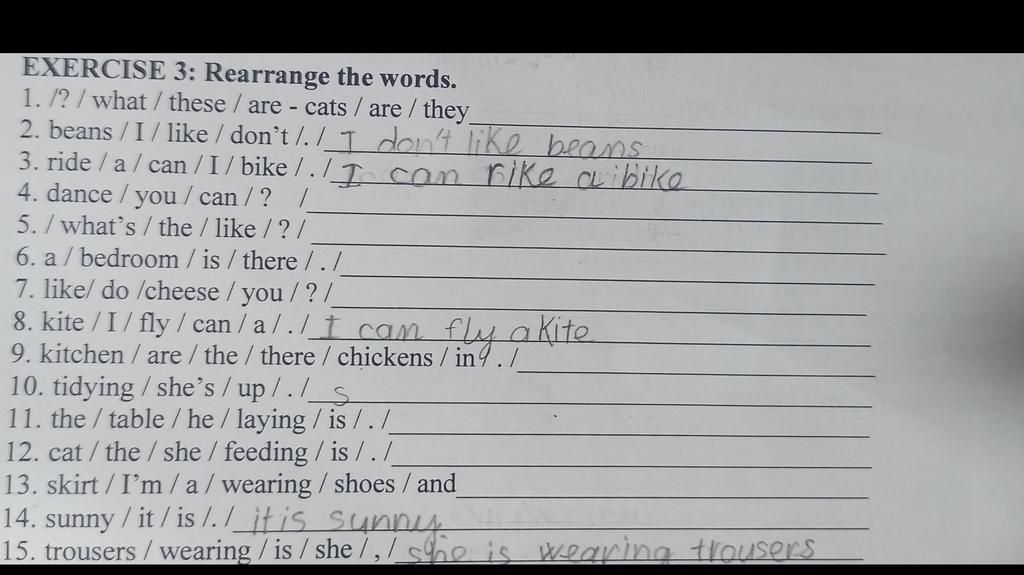 EXERCISE 3: Rearrange the words.
1. /? / what / these / are - cats / are / they
2. beans / I / like / don't /. / I don't like beans
3. ride / a / can / I / bike / . / I can rike a bike
4. dance / you / can / ? /
5. / what's / the / like / ? /
6. a / bedroom / is / there / . /
7. like/ do /cheese / you / ? /
8. kite / I / fly / can / a / . / I can fly a Kite
9. kitchen / are / the / there / chickens / in / . /
10. tidying / she's / up / . / s
11. the / table / he / laying / is / . /
12. cat / the / she / feeding / is / . /
13. skirt / I'm / a / wearing / shoes / and
14. sunny / it / is /. / it is sunny
15. trousers / wearing / is / she / , / she is wearing trousers